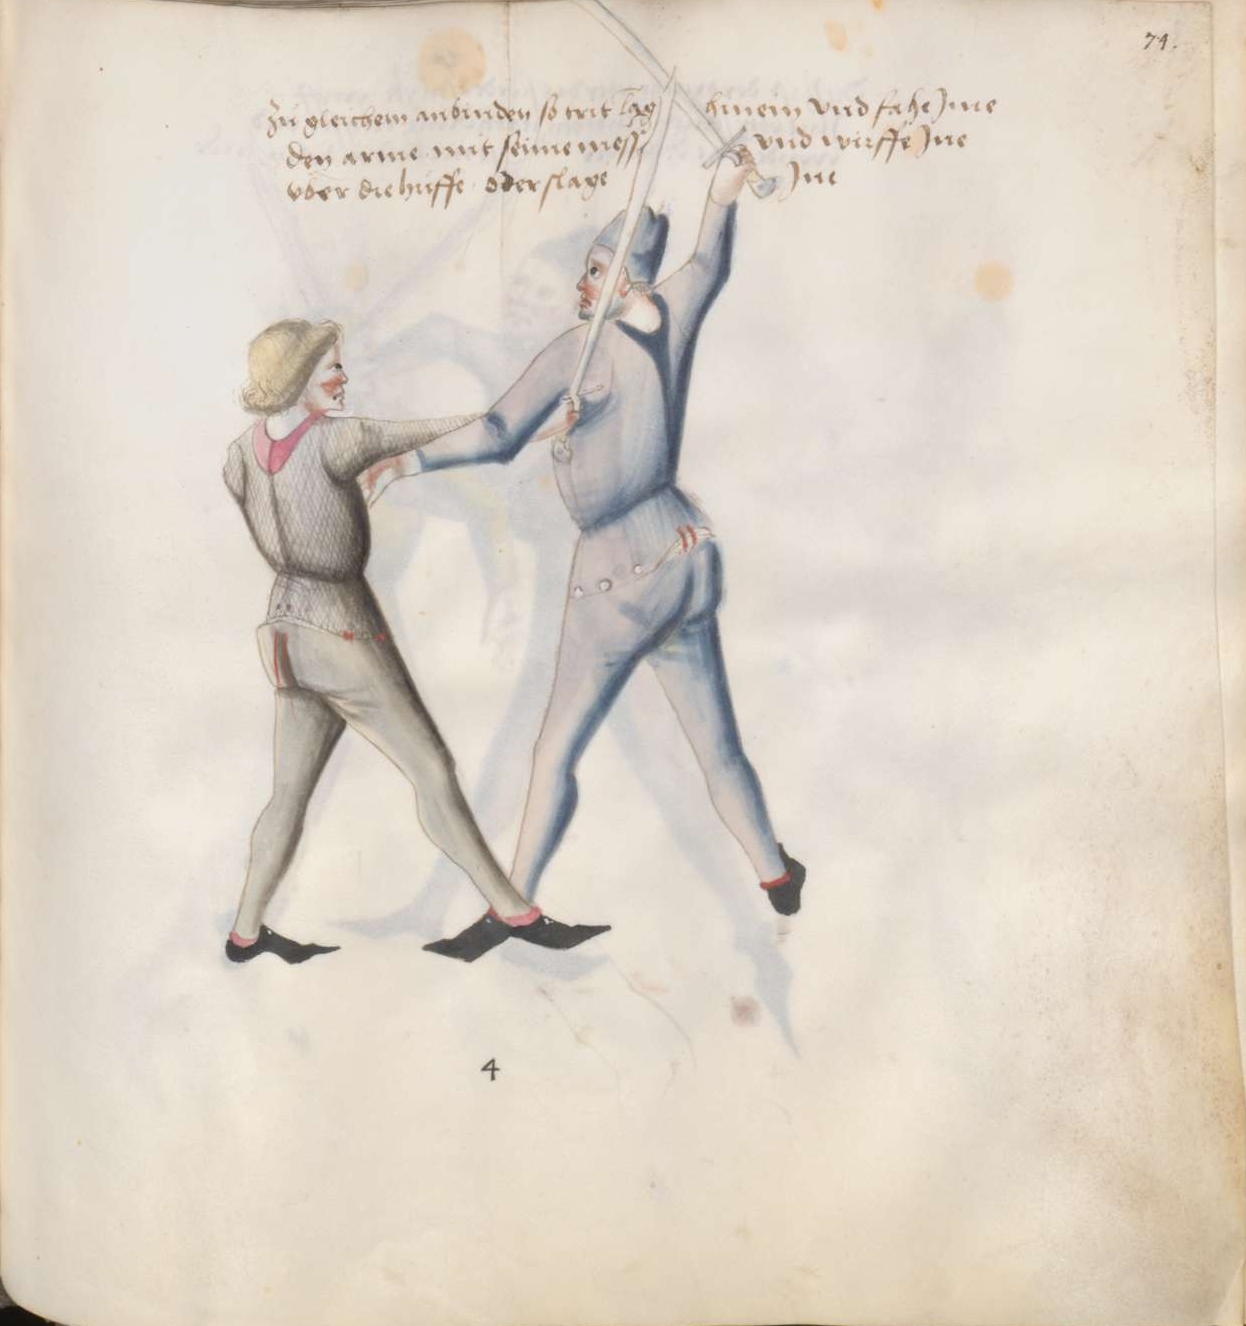 74.
Zu gleichem anbinden so trit hinein vnd fahe Jme
den arme mit seime vnd wirffe Jne
vber die huffe oder slage Jne
4